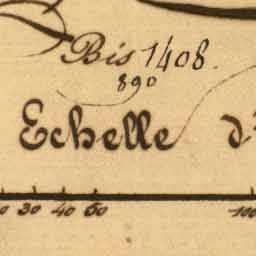 Bis 1408.
890
Echelle d'
0 30 40 50 100